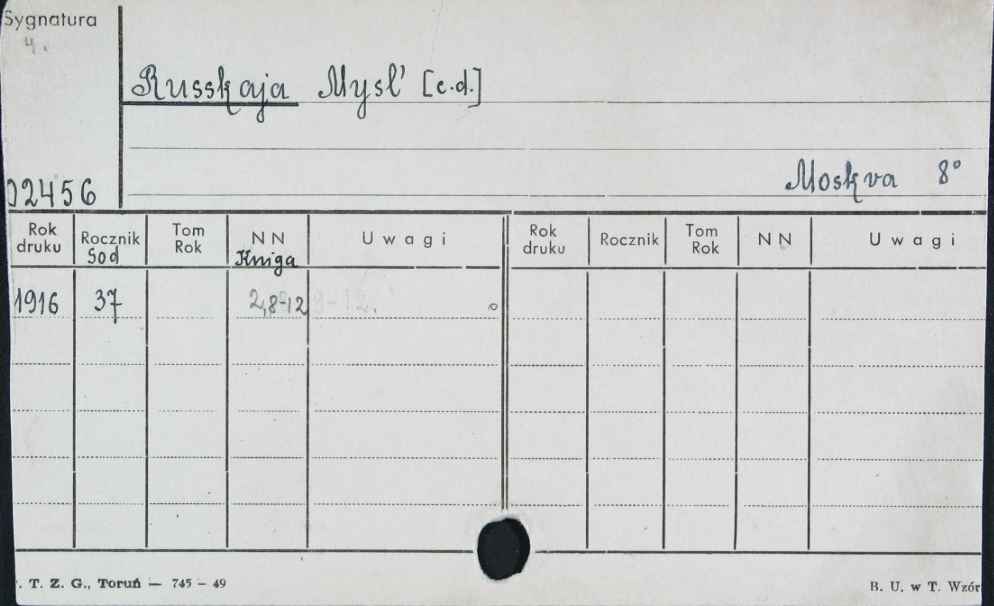 Sygnatura
4.
Russkaja Mysl' [c.d.]
02456
Moskva 8°
Rok druku Rocznik Tom Rok NN Uwagi Rok druku Rocznik Tom Rok NN Uwagi
God Kniga
1916 37 2,8-12 9-12.
. T. Z. G., Toruń — 745 – 49
B. U. w T. Wzór